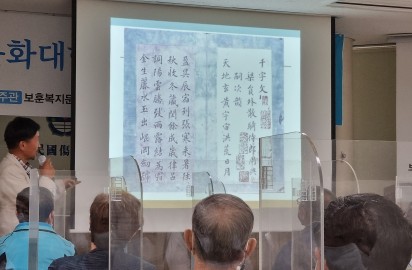 화대
주관 보훈복지문
民國傷
千字文
梁員外散騎侍郎
嗣次韻
天地玄黃宇宙洪荒日月
盈昃辰宿列張寒來暑往
秋收冬藏閏餘成歲律呂
調陽雲騰致雨露結爲霜
金生麗水玉出崑岡